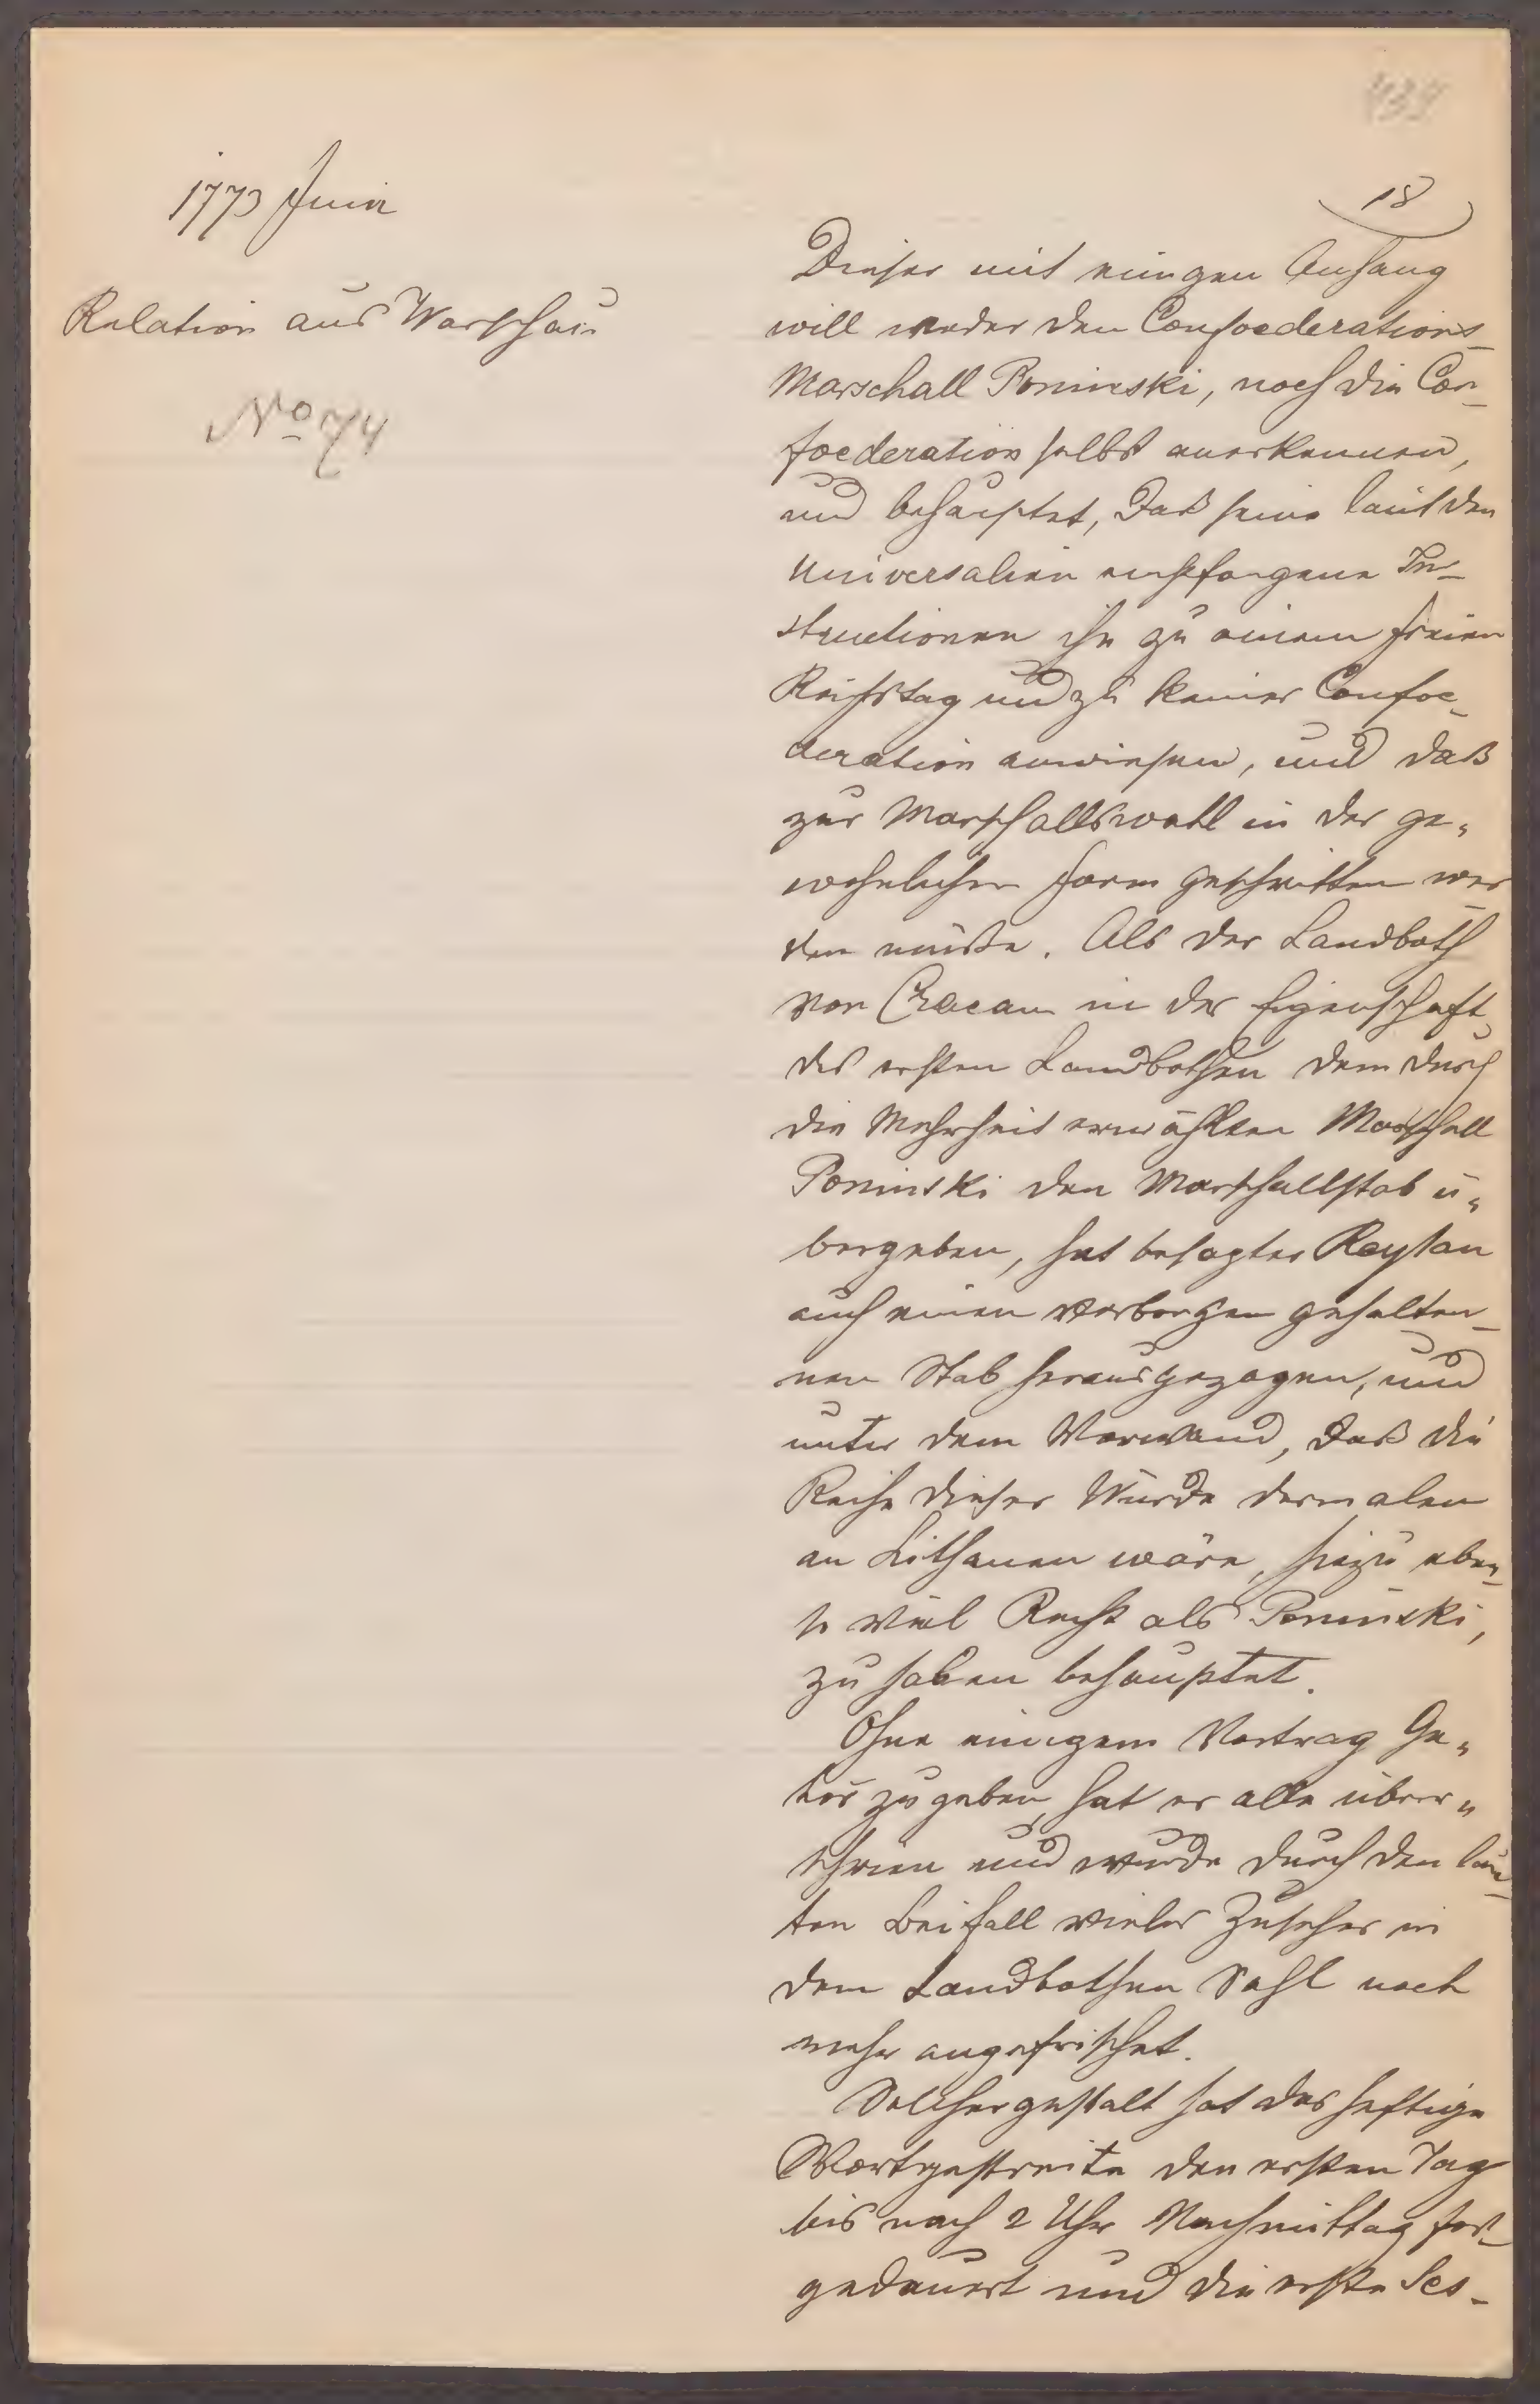 434
1773 Juin
18
Relation aus Warschau
No 74
Dieser mit einigen Anhang
will weder den Confoederations-
Marschall Poninski, noch die Con-
foederation selbst anerkennen,
und behauptet, daß seine laut den
Universalien empfangene In-
structionen ihn zu einem freien
Reichstag und zu keiner Confoe-
deration anwiesen, und daß
zur Marschallswahl in der ge-
wohnlichen Form geschritten wer-
den müße. Als der Landboth
von Cracau in der Eigenschaft
des ersten Landbothen dem durch
die Mehrheit erwählten Marschall
Poninski den Marschallstab ü-
bergeben, hat besagter Reytan
auch einen verborgen gehalten-
nen Stab herausgezogen, und
unter dem Vorwand, daß die
Reihe dieser Würde dermalen
an Lithauen wäre, hiezu eben-
so viel Recht als Poninski,
zu haben behauptet.
Ohne einigem Vortrag Ge-
hör zu geben, hat er alle über-
schrien und wurde durch den lau-
ten Beifall vieler Zuseher in
dem Landbothen Sahl noch
mehr angefrischet.
Solchergestalt hat das heftige
Wortgestreite den ersten Tag
bis nach 2 Uhr Nachmittag fort-
gedauert und die erste Ses-